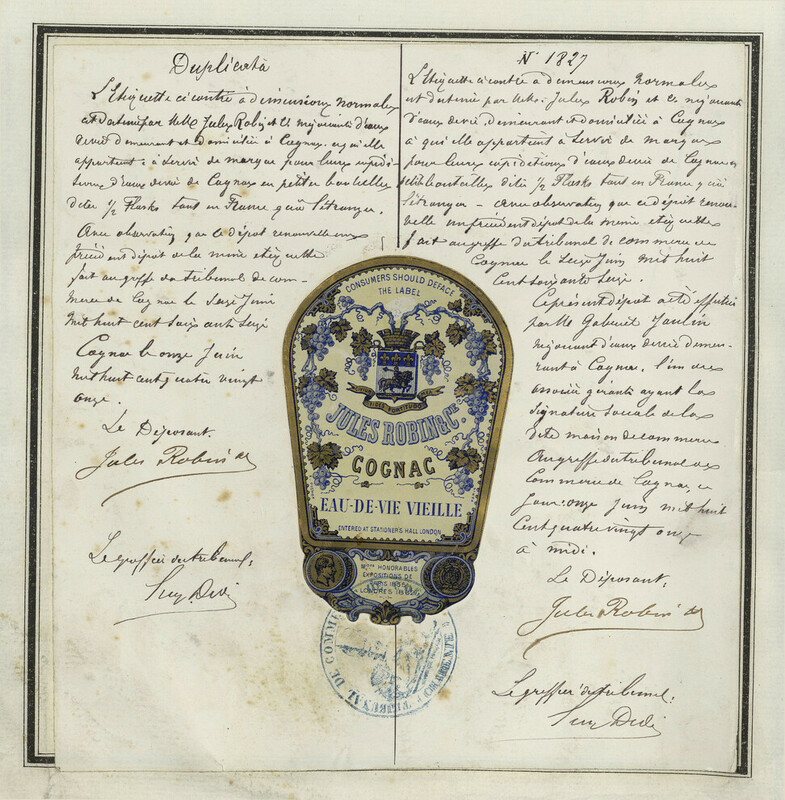 Duplicata
L'Etiquette ci contre à dimensions normales
est destinée par MM. Jules Robin et Cie négociants d'eaux
de vie demeurant et domiciliés à Cognac, à qui elle
appartient à servir de marque pour leurs expédi-
tions d'eaux de vie de Cognac en petites bouteilles
dites 1/2 Flasks tant en France qu'à l'étranger.
Avec observation que ce dépôt renouvelle un
précédent dépôt de la même étiquette
fait au greffe du tribunal de com-
merce de Cognac le Seize Juin
mil huit cent soixante Seize
Cognac le onze Juin
mil huit cent quatre vingt
onze.
Le Déposant.
Jules Robin &
Le greffier du tribunal,
N° 1827
L'Etiquette ci contre à dimensions normales
est destinée par MM. Jules Robin et Cie négociants
d'eaux de vie, demeurant et domiciliés à Cognac
à qui elle appartient à servir de marque
pour leurs expéditions d'eaux de vie de Cognac en
petites bouteilles dites 1/2 Flasks tant en France qu'à
l'étranger - avec observation que ce dépôt renou-
velle un précédent dépôt de la même étiquette
fait au greffe du tribunal de commerce de
Cognac le Seize Juin mil huit
Cent soixante Seize.
Ce présent dépôt a été effectué
par M. Gabriel
négociant d'eaux de vie demeu-
rant à Cognac, l'un des
associés gérants ayant la
Signature Sociale de la
dite maison de commerce
Au greffe du tribunal de
Commerce de Cognac, ce
jour onze Juin mil huit
Cent quatre vingt onze
à midi.
Le Déposant,
Jules Robin &
Le greffier du tribunal,
CONSUMERS SHOULD DEFACE
THE LABEL
FORTITUDO
JULES ROBIN & CIE
COGNAC
EAU-DE-VIE VIEILLE
ENTERED AT STATIONER'S HALL LONDON
MONS HONORABLES
EXPOSITIONS DE
PARIS 1855
LONDRES 1862
TRIBUNAL DE COMMERCE